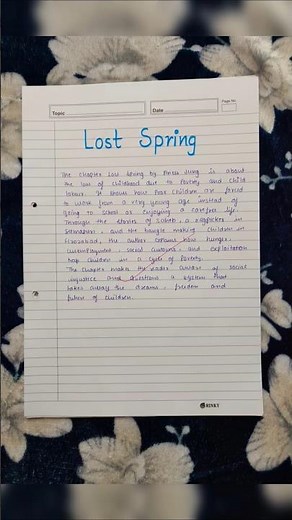 Page No.
Topic
Date
Lost Spring
The Chapter Lost Spring by Anees Jung is about
the loss of childhood due to Poverty and child
labour. It shows how Poor children are forced
to work from a very young age instead of
going to school or enjoying a carefree life.
Through the stories of Saheb, a ragpicker in
Seemapuri, and the bangle making children in
Firozabad, the author how hunger,
Unemployment, social customs, and exploitation
keep children in a cycle of Poverty.
The Chapter makes the reader of social
injustice and questions a system that
takes away the dreams, freedom and
future of children.
RINKY